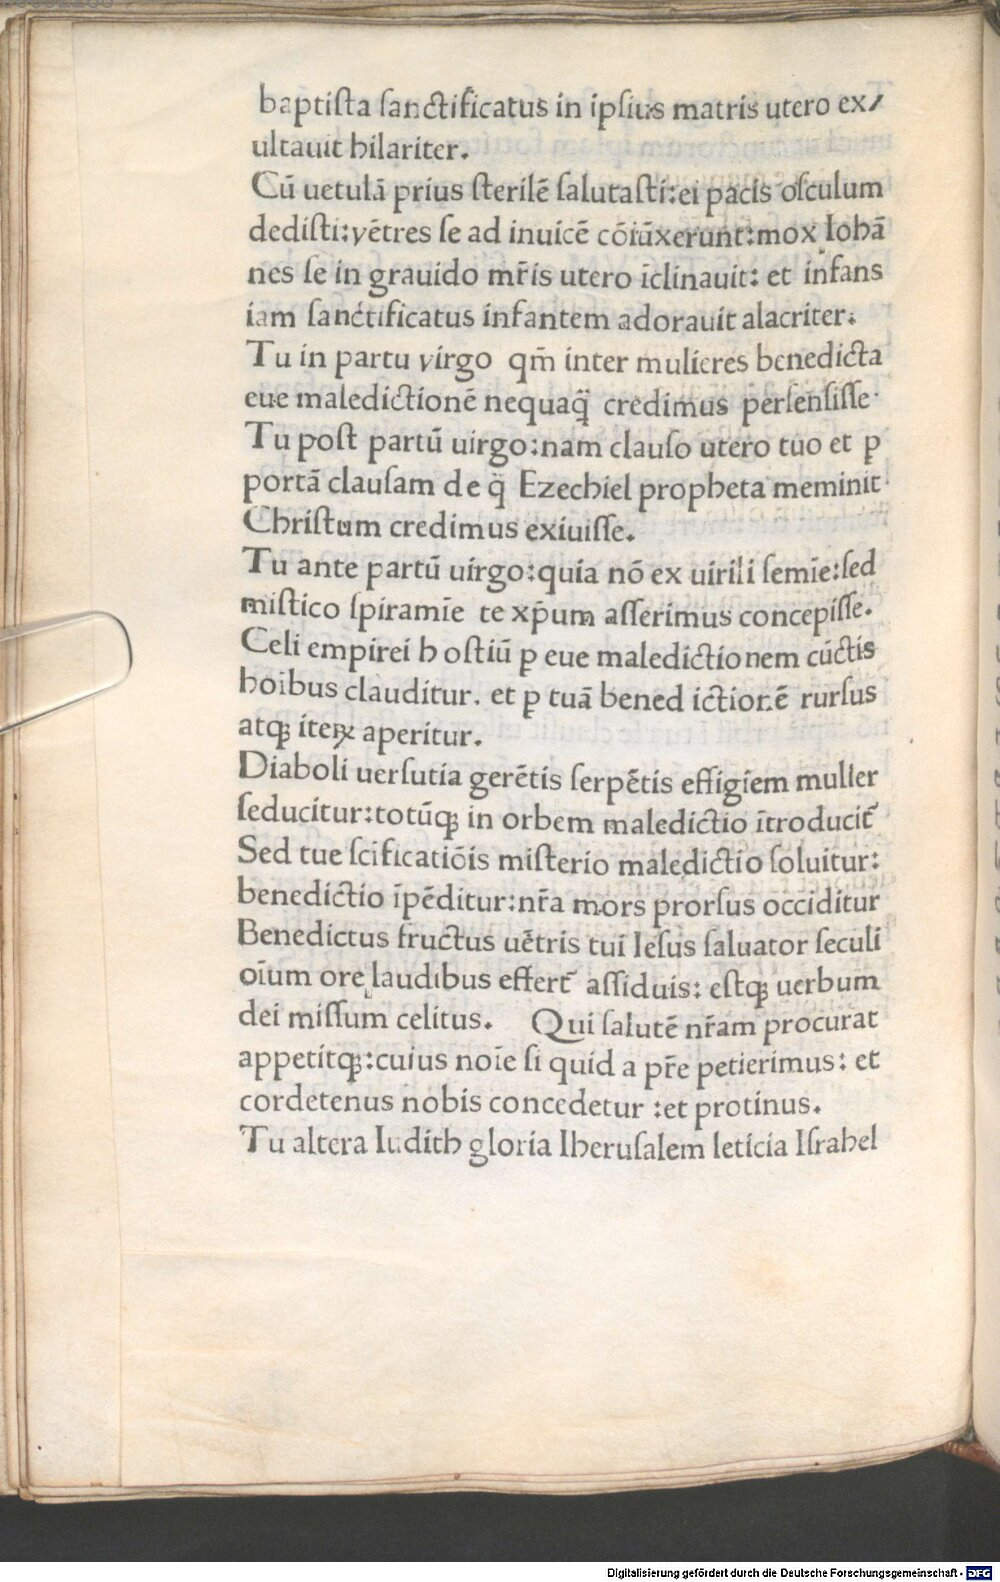 baptiſta ſanctificatus in ipſius matris utero ex/
ultauit hilariter.
Cū uetulā prius ſterilē ſalutaſti:ei pacis oſculum
dediſti:vētres ſe ad inuicē cōiūxerunt:mox Iohā
nes ſe in grauido mr̄is utero īclinauit: et infans
iam ſanctificatus infantem adorauit alacriter.
Tu in partu virgo qm̄ inter mulieres benedicta
eue maledictionē nequaq̈ credimus perſenſiſſe.
Tu poſt partū uirgo:nam clauſo utero tuo et ꝑ
portā clauſam de q̈ Ezechiel propheta meminit.
Chriſtum credimus exiuiſſe.
Tu ante partū uirgo:quia nō ex uirili ſemīe:ſed
miſtico ſpiramīe te xp̄um aſſerimus concepiſſe.
Celi empirei hoſtiū ꝑ eue maledictionem cūctis
hoībus clauditur. et ꝑ tuā benedictionē rurſus
atqꝫ iteꝝ aperitur.
Diaboli uerſutia gerētis ſerpētis effigiem mulier
ſeducitur:totūqꝫ in orbem maledictio ītroducit᷑
Sed tue ſcificatiōis miſterio maledictio ſoluitur:
benedictio īpēditur:nr̄a mors prorſus occiditur
Benedictus fructus uētris tui Ieſus ſaluator ſeculi
oīum ore laudibus effert᷑ aſſiduis: eſtqꝫ uerbum
dei miſſum celitus. Qui ſalutē nr̄am procurat
appetitqꝫ:cuius noīe ſi quid a pr̄e petierimus: et
cordetenus nobis concedetur :et protinus.
Tu altera Iudith gloria Iheruſalem leticia Iſrahel
Digitalisierung gefördert durch die Deutsche Forschungsgemeinschaft - DFG